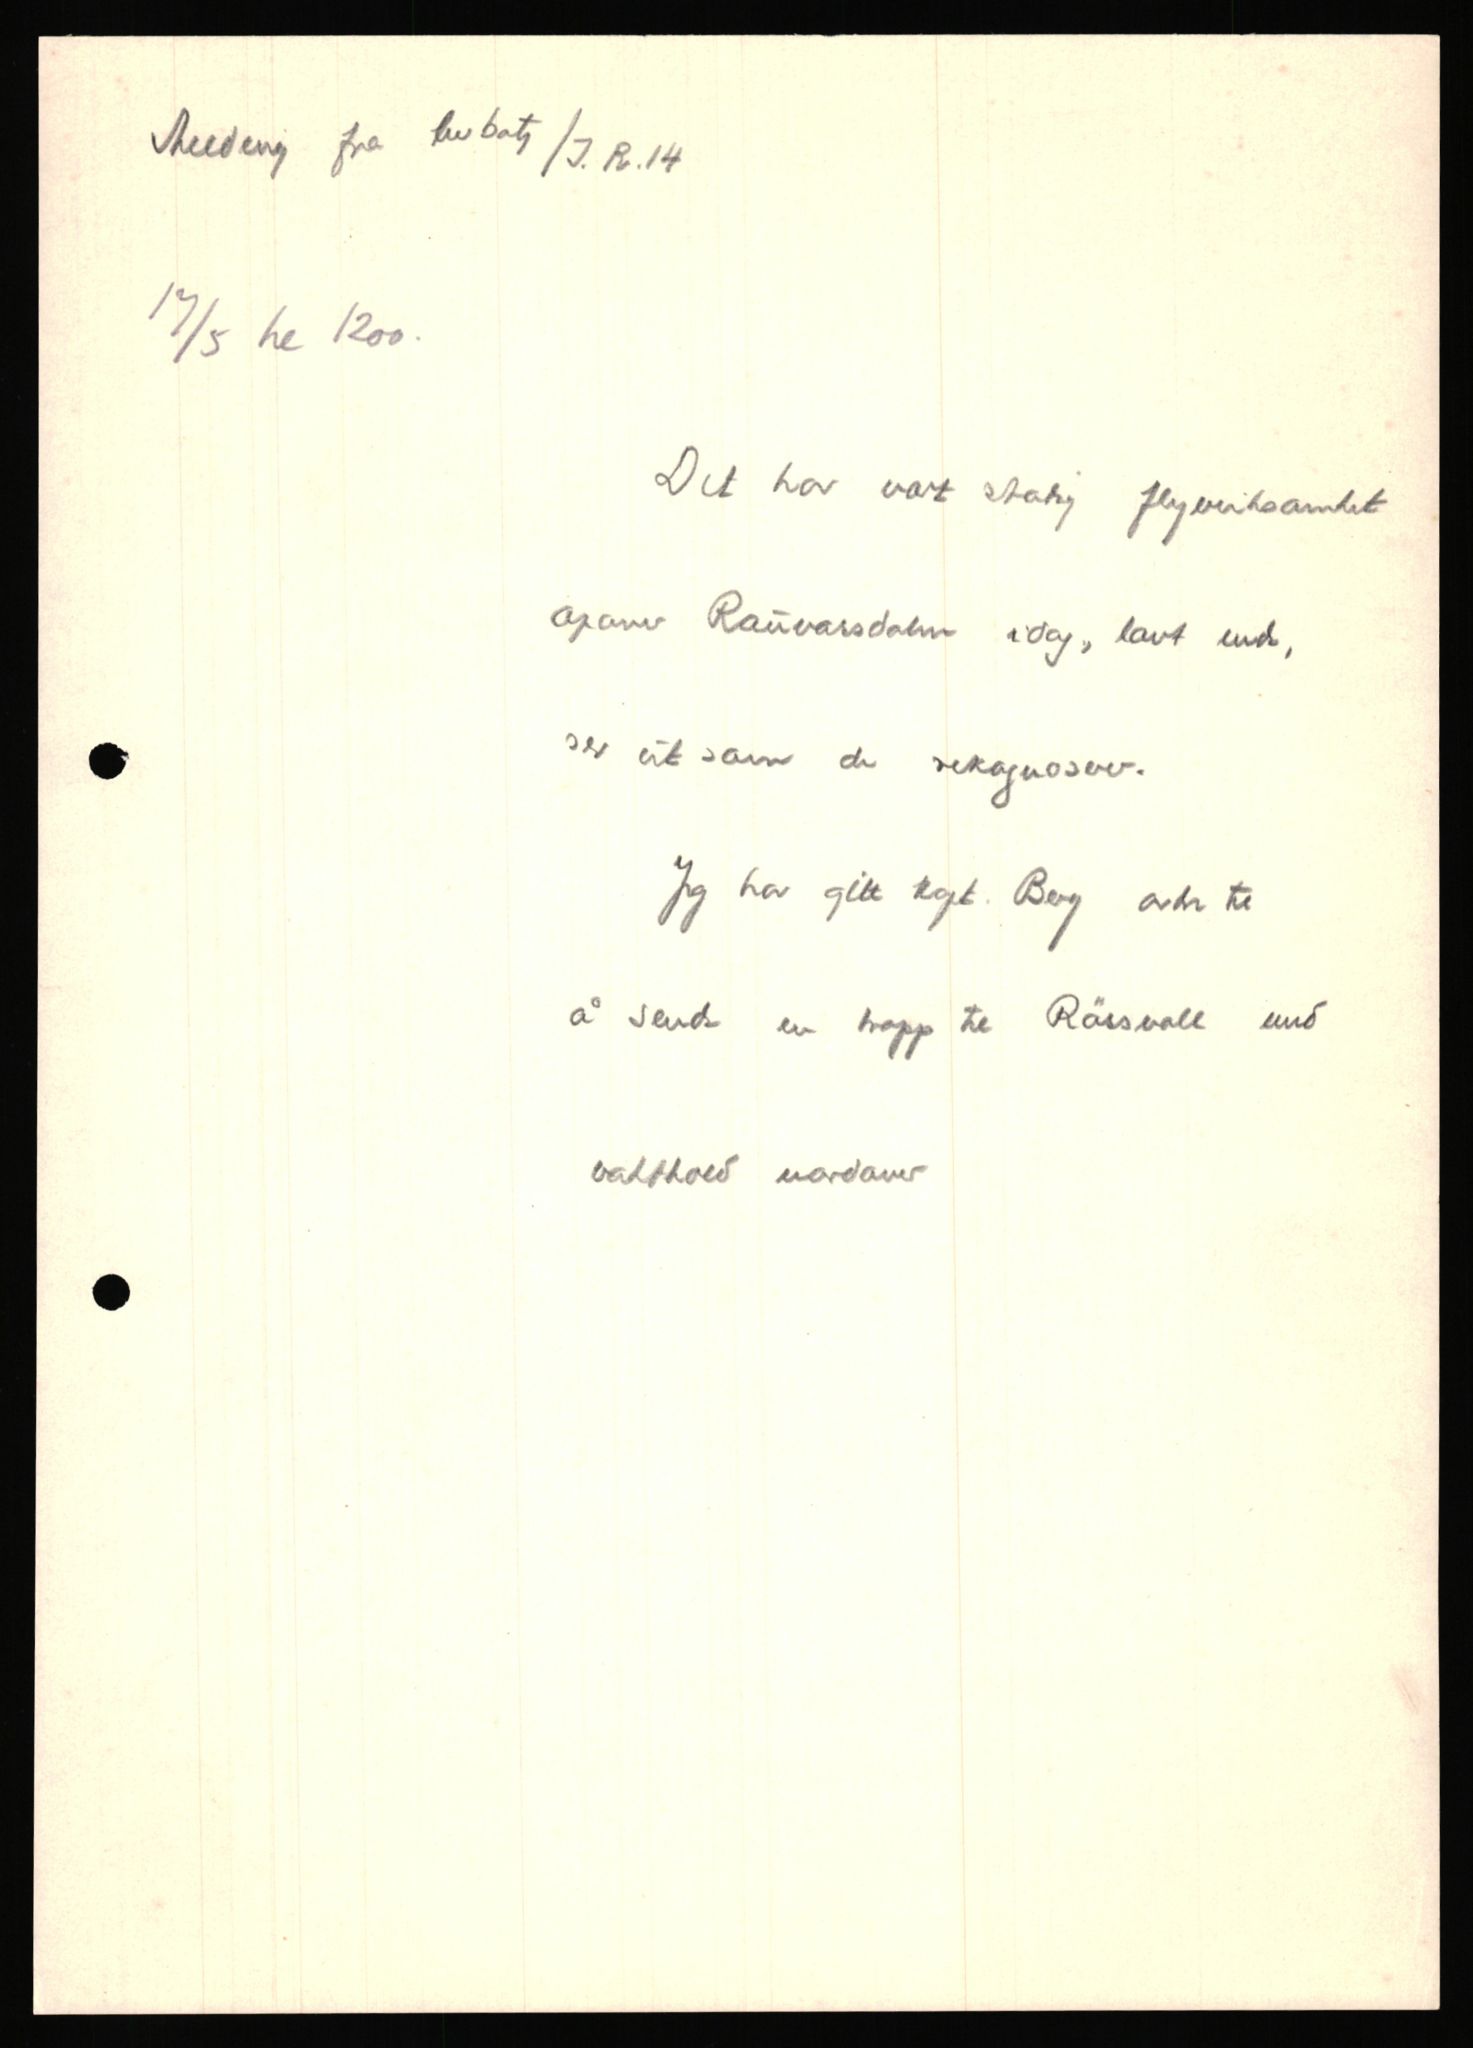 Melding fra lubatj/I.R.14
17/5 kl 1200.
Det har vært stadig flyvirksomhet
opover Raüvassdalen idag, lavt nede,
ser üt som de rekognoserer.
Jeg har gitt kapt. Berg ordre til
å sende en tropp til Rössvoll med
vakthold nordover